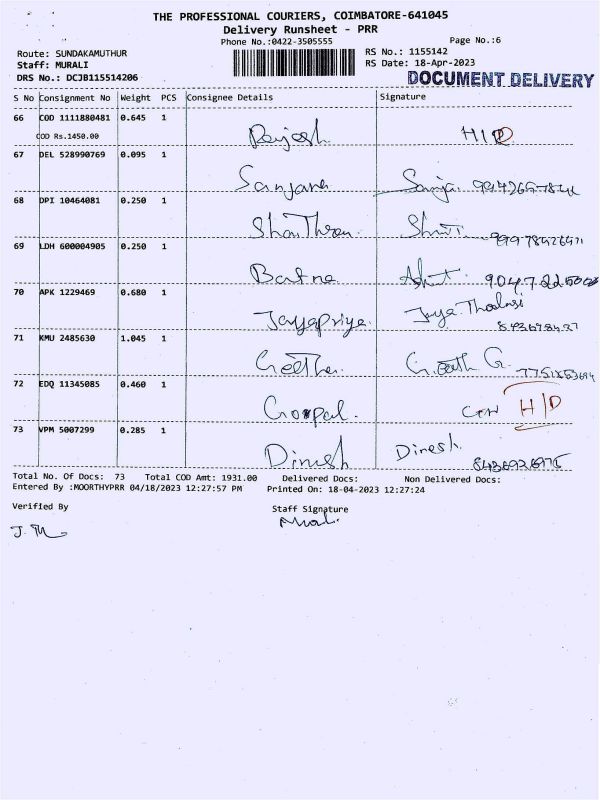 THE PROFESSIONAL COURIERS, COIMBATORE-641045
Delivery Runsheet - PRR
Phone No.:0422-3505555 Page No.:6
Route: SUNDAKAMUTHUR RS No.: 1155142
Staff: MURALI RS Date: 18-Apr-2023
DRS No.: DCJB115514206 DOCUMENT DELIVERY
S No Consignment No Weight PCS Consignee Details Signature
66 COD 1111880481 0.645 1 Rajesh H/D
COD Rs.1450.00
67 DEL 528990769 0.095 1 Sanjana
68 DPI 10464081 0.250 1
69 LDH 600004905 0.250 1
70 APK 1229469 0.680 1 Jayapriya
71 KMU 2485630 1.045 1 Geetha
72 EDQ 11345085 0.460 1 Goopal. H/D
73 VPM 5007299 0.285 1 Dinesh Dinesh
Total No. Of Docs: 73 Total COD Amt: 1931.00 Delivered Docs: Non Delivered Docs:
Entered By :MOORTHYPRR 04/18/2023 12:27:57 PM Printed On: 18-04-2023 12:27:24
Verified By Staff Signature
Murali